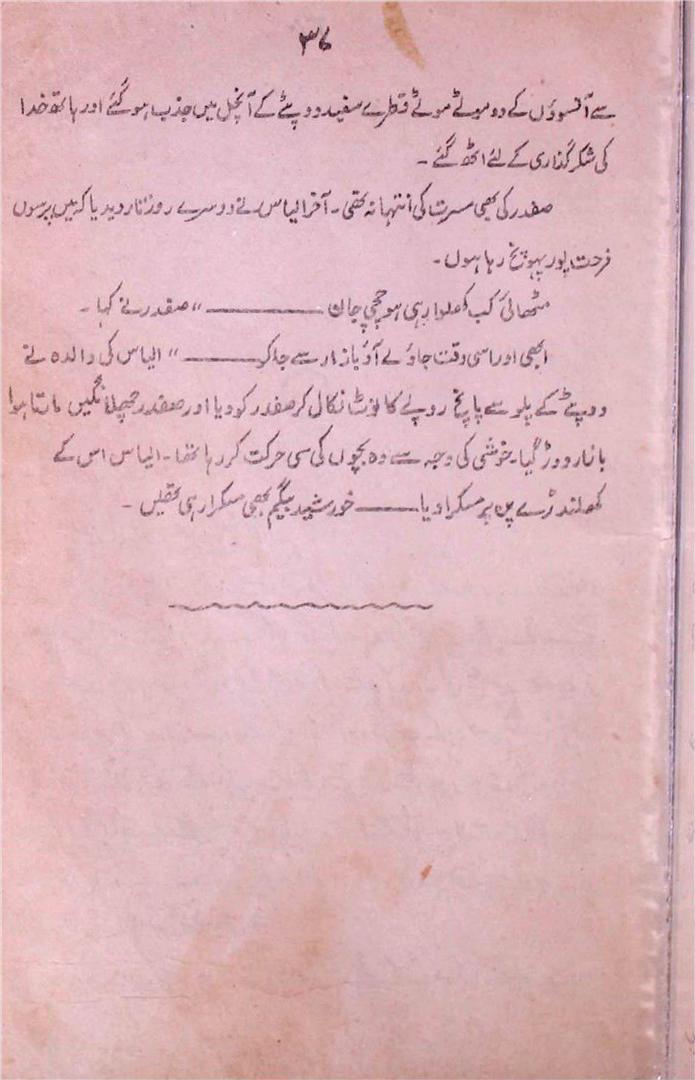 ۳۶
سے آنسوؤں کے دو موٹے موٹے قطرے سفید دوپٹے کے آنچل میں جذب ہو گئے اور ہاتھ خدا
کی شکر گذاری کے لئے اٹھ گئے ۔
صفدر کی بھی مسرت کی انتہا نہ تھی ۔ آخر الیاس نے دوسرے روز تار دیدیا کہ میں پرسوں
فرحت پور پہونچ رہا ہوں ۔
مٹھائی کب کھلوا رہی ہو چچی جان ــــــــــ " صفدر نے کہا ۔
ابھی اور اسی وقت جاؤ لے آؤ بازار سے جا کر ــــــــــ " الیاس کی والدہ نے
دوپٹے کے پلو سے پانچ روپے کا نوٹ نکال کر صفدر کو دیا اور صفدر چھلانگیں مارتا ہوا
بازار دوڑ گیا ۔ خوشی کی وجہ سے وہ بچوں کی سی حرکت کر رہا تھا ۔ الیاس اس کے
کھلنڈرے پن پر مسکرا دیا ــــــــــ خورشید بیگم بھی مسکرا رہی تھیں ۔